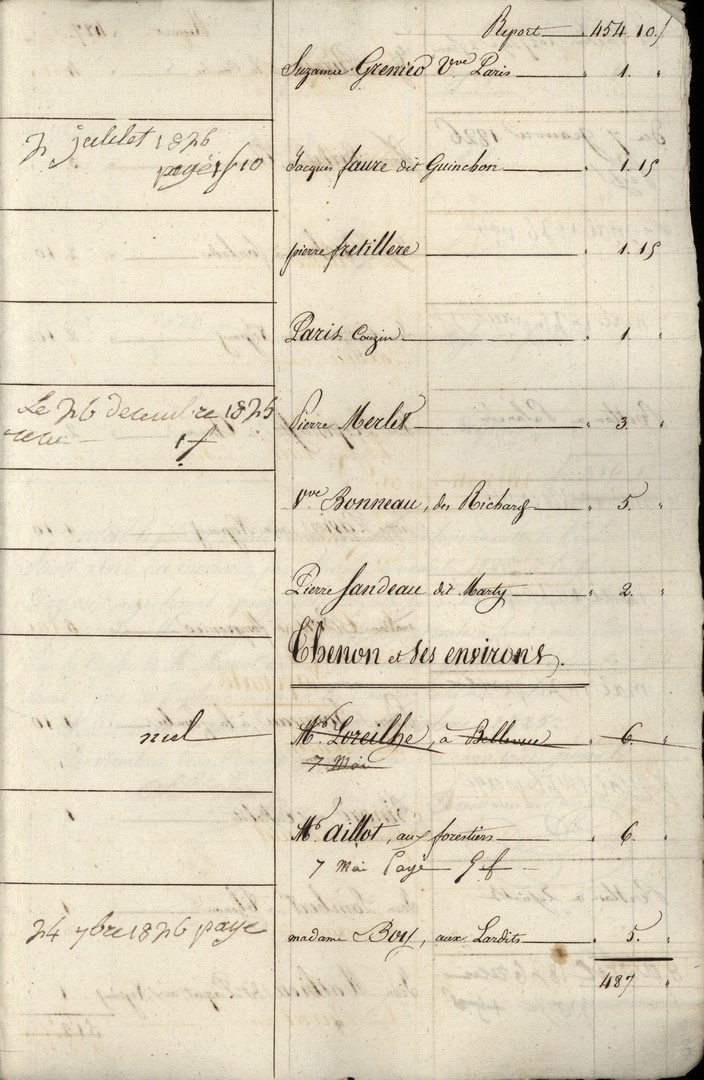 Report 454 10
Suzanne Grenier Vve Paris 1. "
2 juillet 1826
payé 1f 10
Jacques faure dit Guinchon 1. 15
pierre fretillere 1. 15
Paris Couzin 1. "
Le 26 decembre 1825
recu 1f
Pierre Merlet " 3. "
Vve Bonneau, des Richards " 5. "
Pierre Sandeau dit Marty " 2. "
Chenon et ses environs.
nul
Mr. Loreilhe, à Bellevue " 6. "
7 Mai
Mr. aillot, aux forestiers " 6. "
7 Mai Payé
24 7bre 1826 payé
madame Boy, aux Lardits " 5. "
487 "